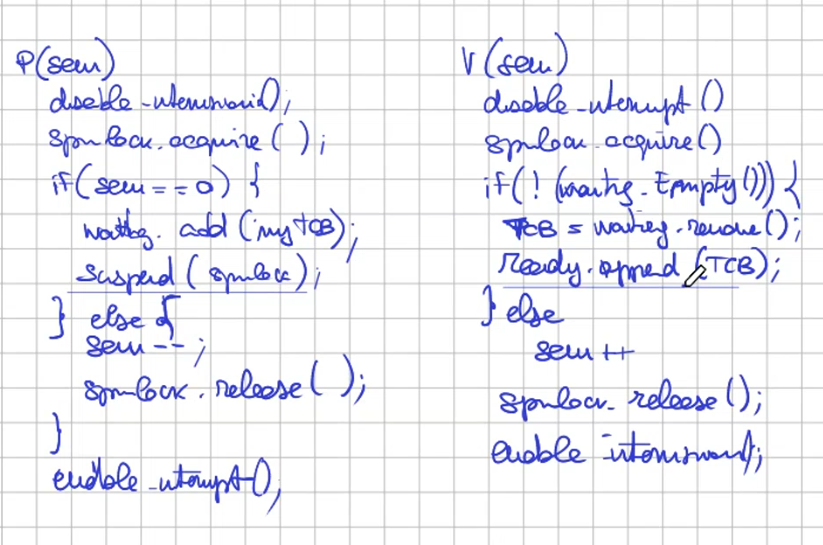 P(sem)
disable_interrupt();
spinlock.acquire();
if(sem==0) {
waiting.add(myTCB);
suspend(spinlock);
} else {
sem--;
spinlock.release();
}
enable_interrupt();
V(sem)
disable_interrupt()
spinlock.acquire()
if(!(waiting.Empty())) {
TCB = waiting.remove();
ready.append(TCB);
} else
sem++
spinlock.release();
enable interrupt();